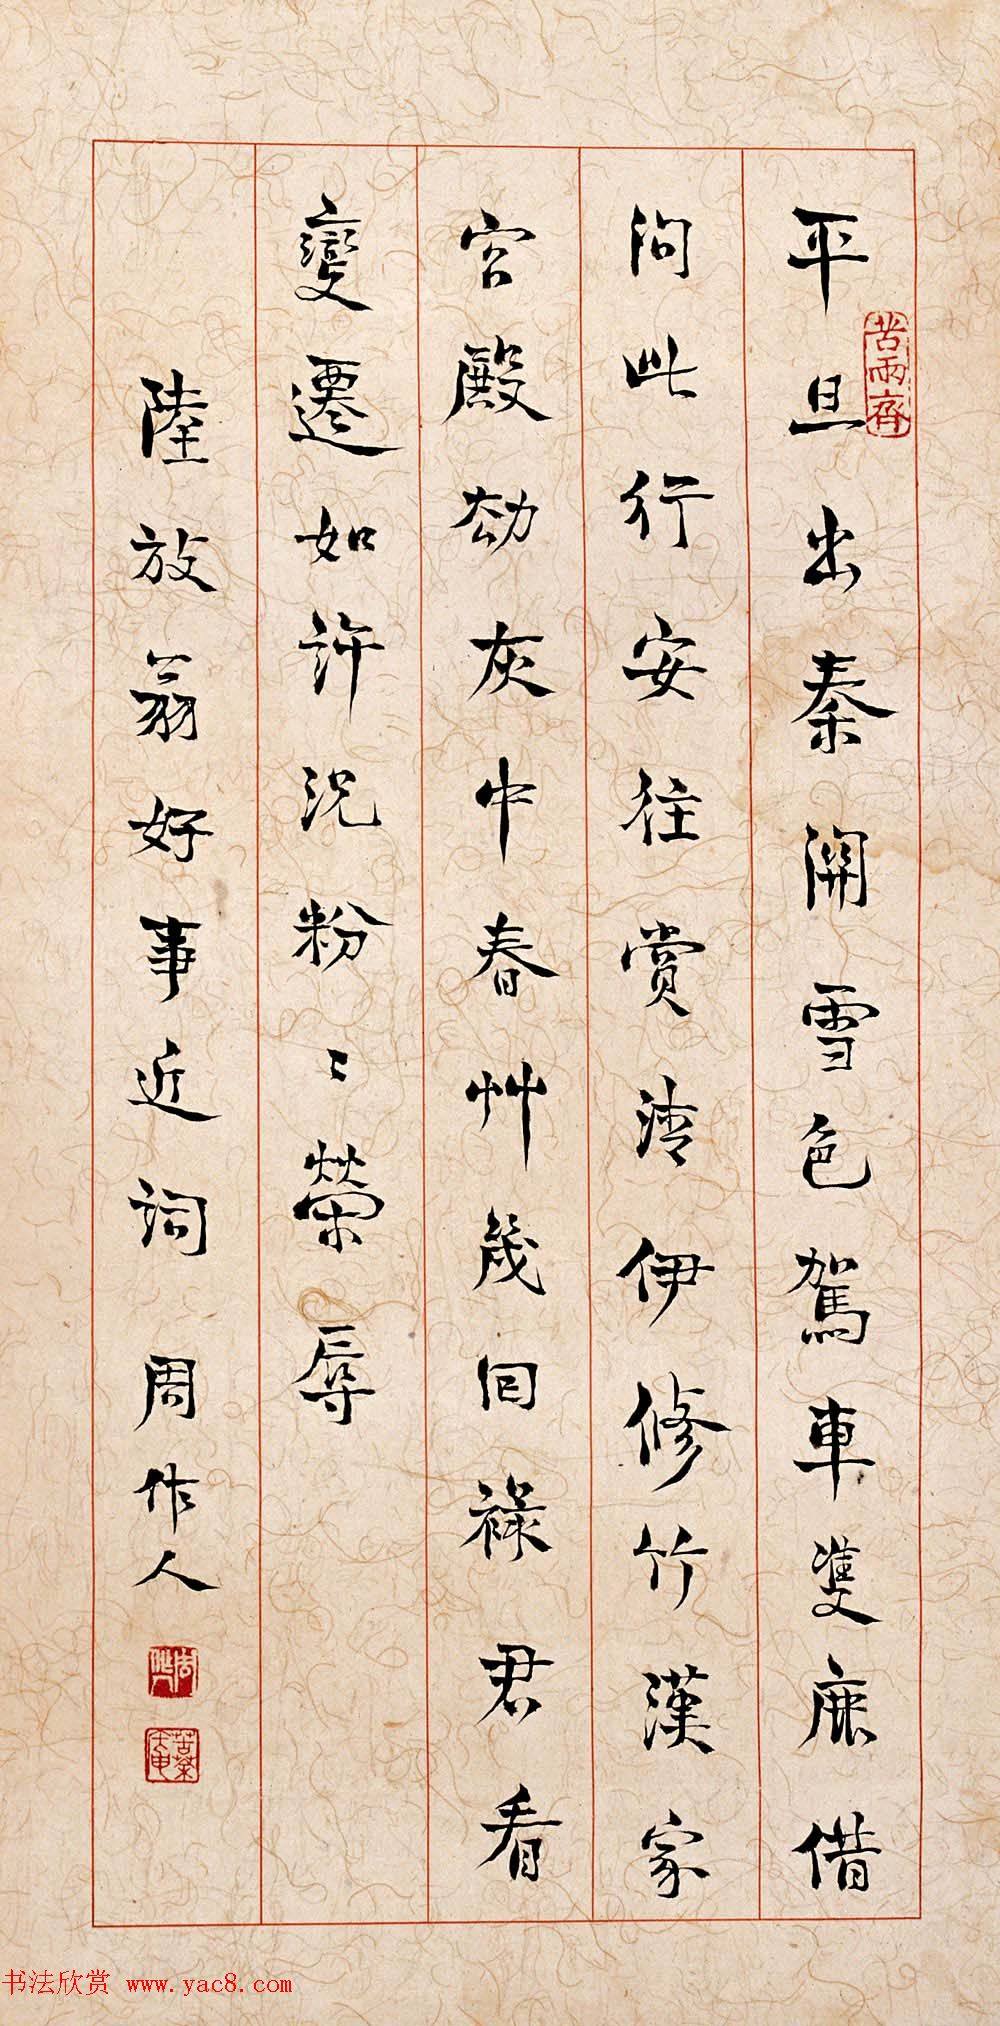 平旦出秦關雪色駕車雙鹿借
問此行安往賞清伊修竹漢家
宮殿劫灰中春艸幾回祿君看
變遷如許況粉〻榮辱
陸放翁好事近詞 周作人
苦雨齋
周作人
苦茶庵
书法欣赏 www.yac8.com